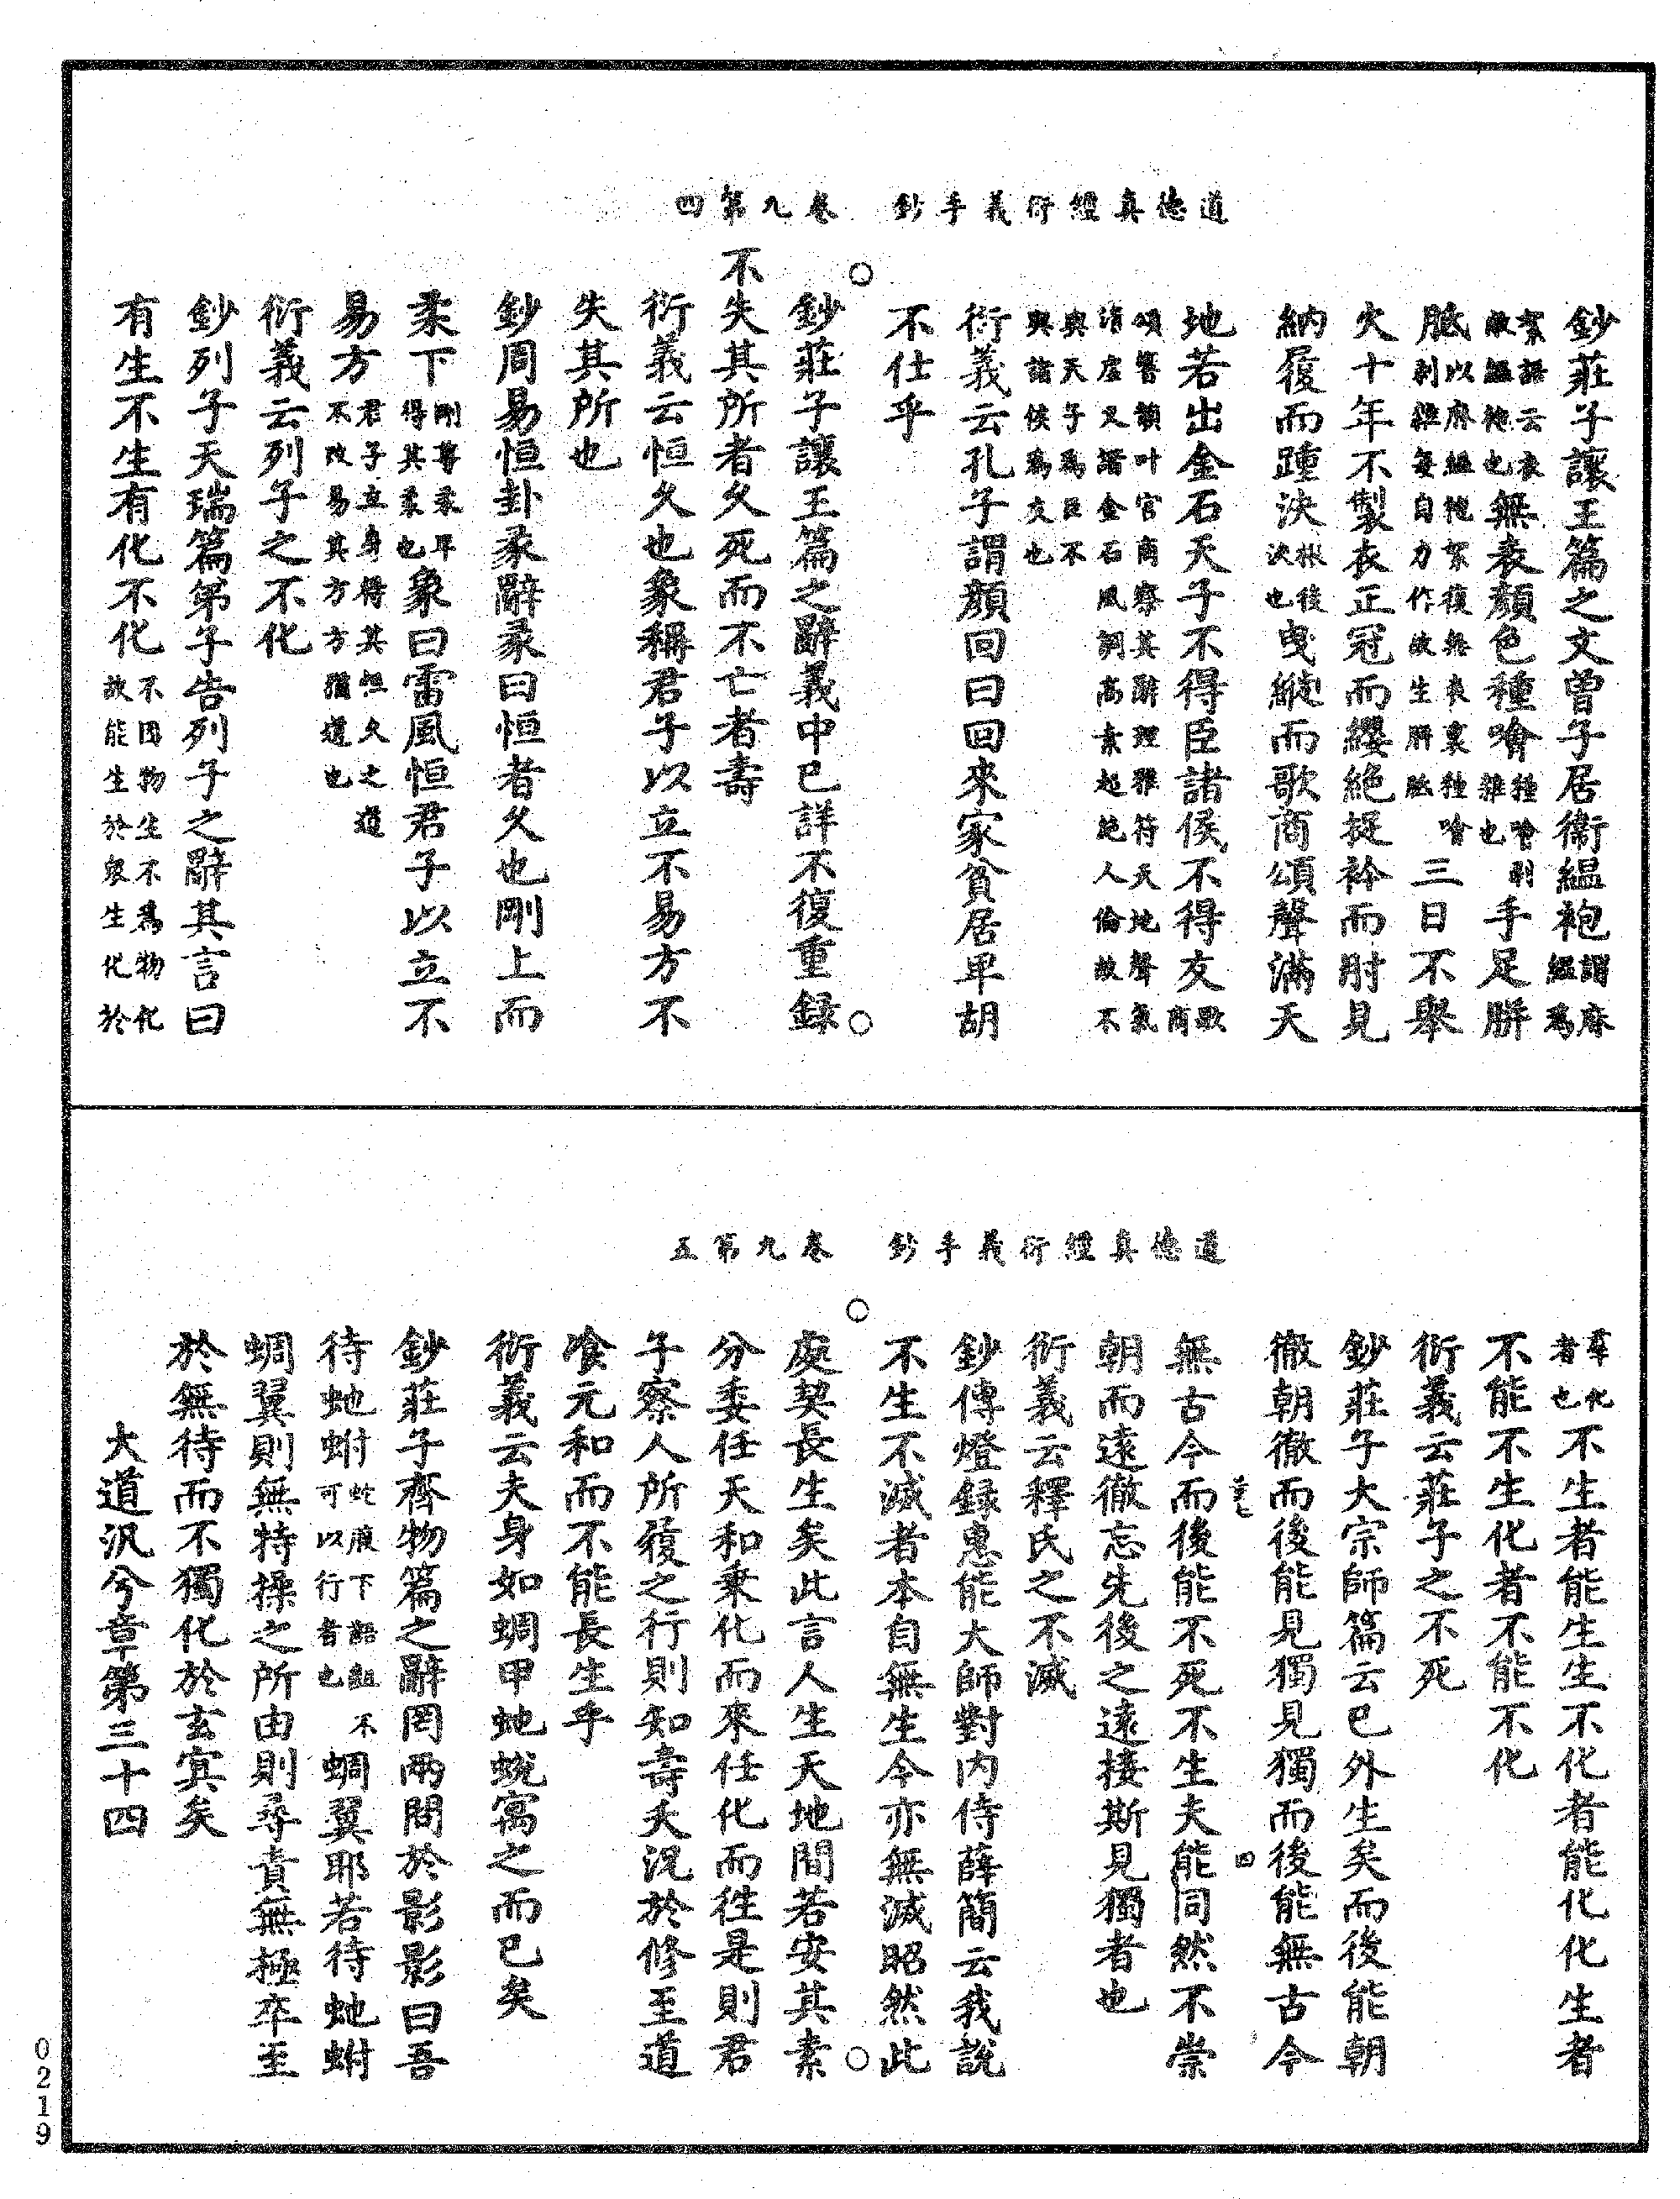 道德真經衍義手鈔　卷九第四
鈔莊子讓王篇之文曾子居衛縕袍謂麻縕爲
絮語云衣敝縕袍也無表顏色種噲種噲剩雜也手足胼
胝以麻縕袍絮復無表裏種噲剩雜每自力作故生胼胝三日不舉
火十年不製衣正冠而纓絕捉衿而肘見
納履而踵決振後決也曳縰而歌商頌聲滿天
地若出金石天子不得臣諸侯不得友歌商
頌響韻叶官商察其辭理雅符天地聲氣清虛又諧金石風調高素超絕人倫故不
與天子爲臣不與諸侯爲友也
衍義云孔子謂顏回曰回來家貧居卑胡
不仕乎
鈔莊子讓王篇之辭義中已詳不復重錄
不失其所者久死而不亡者壽
衍義云恒久也象稱君子以立不易方不
失其所也
鈔周易恒卦彖辭彖曰恒者久也剛上而
柔下剛尊柔卑得其柔也象曰雷風恒君子以立不
易方君子立身得其恒久之道不改易其方方猶道也
衍義云列子之不化
鈔列子天瑞篇第子告列子之辭其言曰
有生不生有化不化不因物生不爲物化故能生於衆生化於
道德真經衍義手鈔　卷九第五
羣化者也不生者能生生不化者能化化生者
不能不生化者不能不化
衍義云莊子之不死
鈔莊子大宗師篇云已外生矣而後能朝
徹朝徹而後能見獨見獨而後能無古今
無古今而後能不死不生夫能同然不崇
朝而遠徹忘先後之遠接斯見獨者也
衍義云釋氏之不滅
鈔傳燈錄惠能大師對內侍薛簡云我說
不生不滅者本自無生今亦無滅昭然此
處契長生矣此言人生天地間若安其素
分委任天和乘化而來任化而往是則君
子察人所履之行則知壽夭況於修至道
飡元和而不能長生乎
衍義云夫身如蜩甲虵蛻寓之而已矣
鈔莊子齊物篇之辭罔兩問於影影曰吾
待虵蚹蛇腹下齟齬可以行者也不蜩翼耶若待虵蚹
蜩翼則無特操之所由則尋責無極卒至
於無待而不獨化於玄冥矣
大道汎兮章第三十四
0219